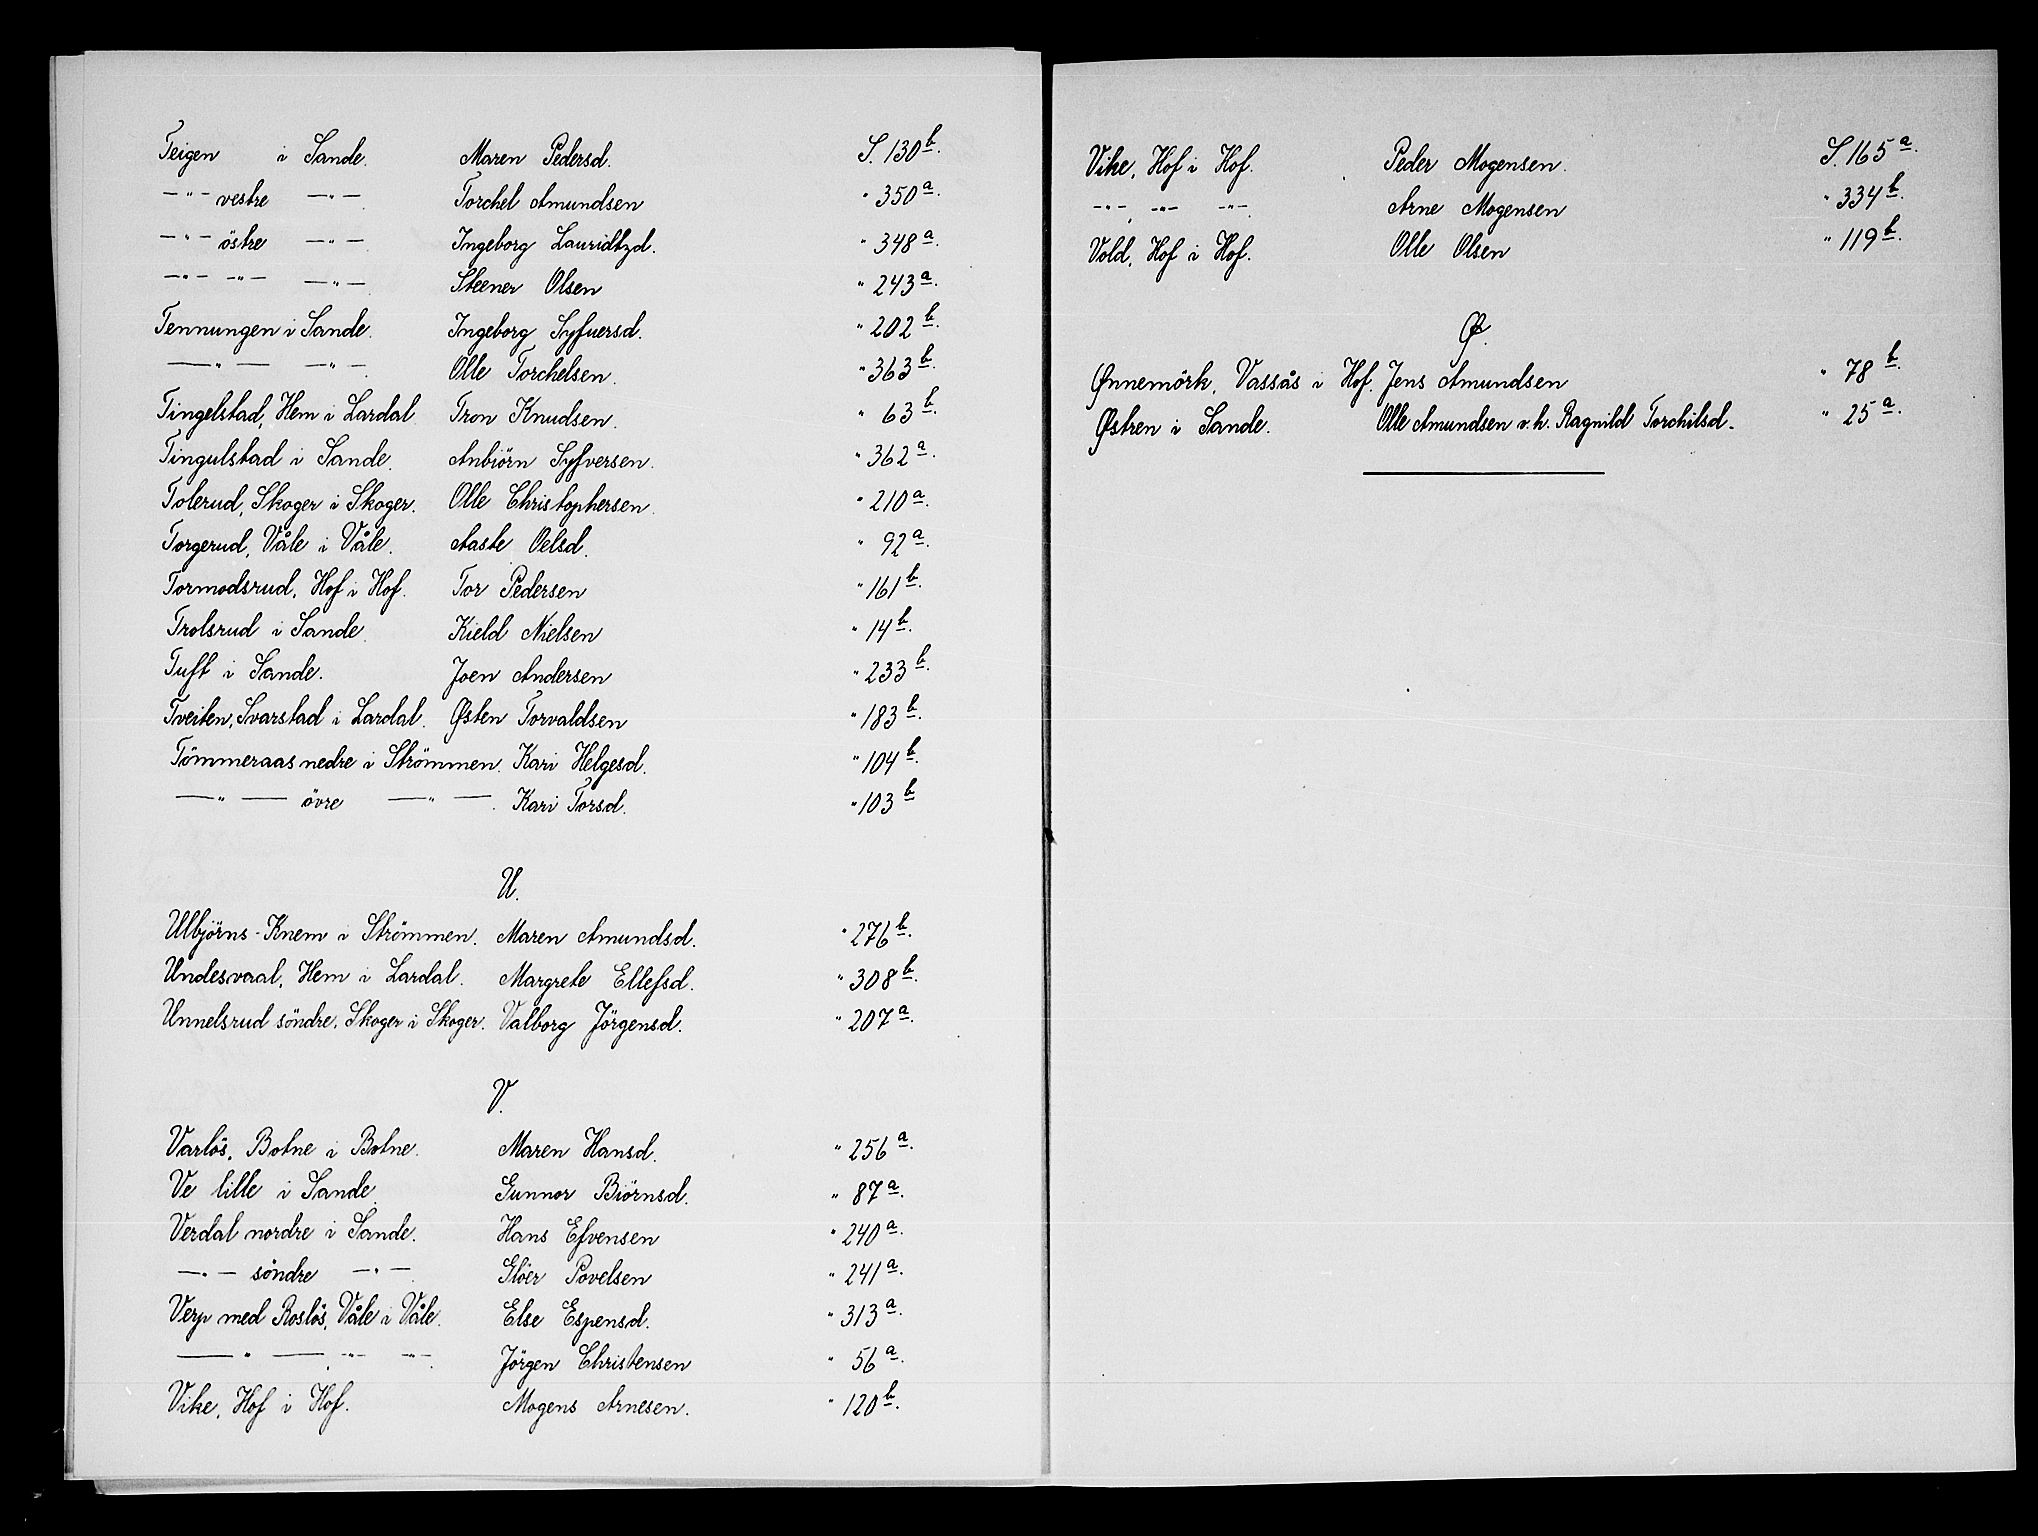 Teigen i Sande. Maren Pedersd. S. 130 b.
—"— vestre —"— Torchel Amundsen " 350 a.
—"— östre —"— Ingeborg Lauridtzd. " 348 a.
—"— —"— —"— Steener Olsen " 243 a.
Tennungen i Sande. Ingeborg Syfuersd. " 202 b.
—"— —"— Olle Torchelsen. " 363 b.
Tingelstad, Hem i Lardal. Tron Knudsen. " 63 b.
Tingulstad i Sande. Anbiörn Syfversen. " 362 a.
Tolerud, Skoger i Skoger. Olle Christophersen. " 210 a.
Torgerud, Våle i Våle. Aaste Oelsd. " 92 a.
Tormodsrud, Hof i Hof. Tor Pedersen " 161 b.
Trolsrud i Sande. Kield Nielsen " 14 b.
Tuft i Sande. Joen Andersen " 233 b.
Tveiten, Svarstad i Lardal. Østen Torvaldsen " 183 b.
Tömmeraas nedre i Strömmen. Kari Helgesd. " 104 b.
—"— övre —"—. Kari Torsd. " 103 b
U.
Ulbjörns-Knem i Strömmen. Maren Amundsd. " 276 b.
Undesvaal, Hem i Lardal. Margrete Ellefsd. " 308 b.
Unnelsrud söndre, Skoger i Skoger. Valborg Jörgensd. " 207 a.
V.
Varlös, Botne i Botne. Maren Hansd. " 256 a.
Ve lille i Sande. Gunnor Biörnsd. " 87 a.
Verdal nordre i Sande. Hans Efvensen " 240 a.
—"— söndre —"—. Glöer Povelsen " 241 a.
Verp med Roslös, Våle i Våle. Else Espensd. " 313 a.
—"—, —"— —"—. Jörgen Christensen " 56 a.
Vike, Hof i Hof. Mogens Arnesen. " 120 b.
Vike, Hof i Hof. Peder Mogensen. S. 165 a.
—"—, —"— —"—. Arne Mogensen " 334 b.
Vold, Hof i Hof. Olle Olsen " 119 b.
Ø.
Ønnemörk, Vassås i Hof. Jens Amundsen " 78 b.
Østren i Sande. Olle Amundsen v.h. Ragnild Torchilsd. " 25 a.